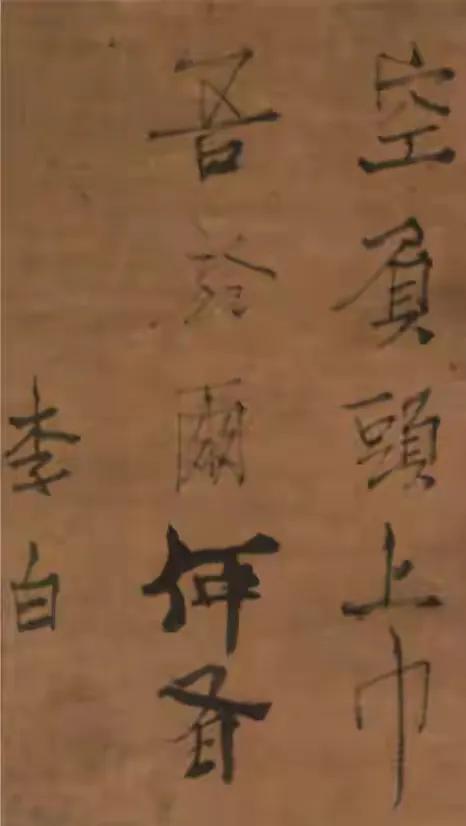 空負頭上巾
吾於爾何有
李白